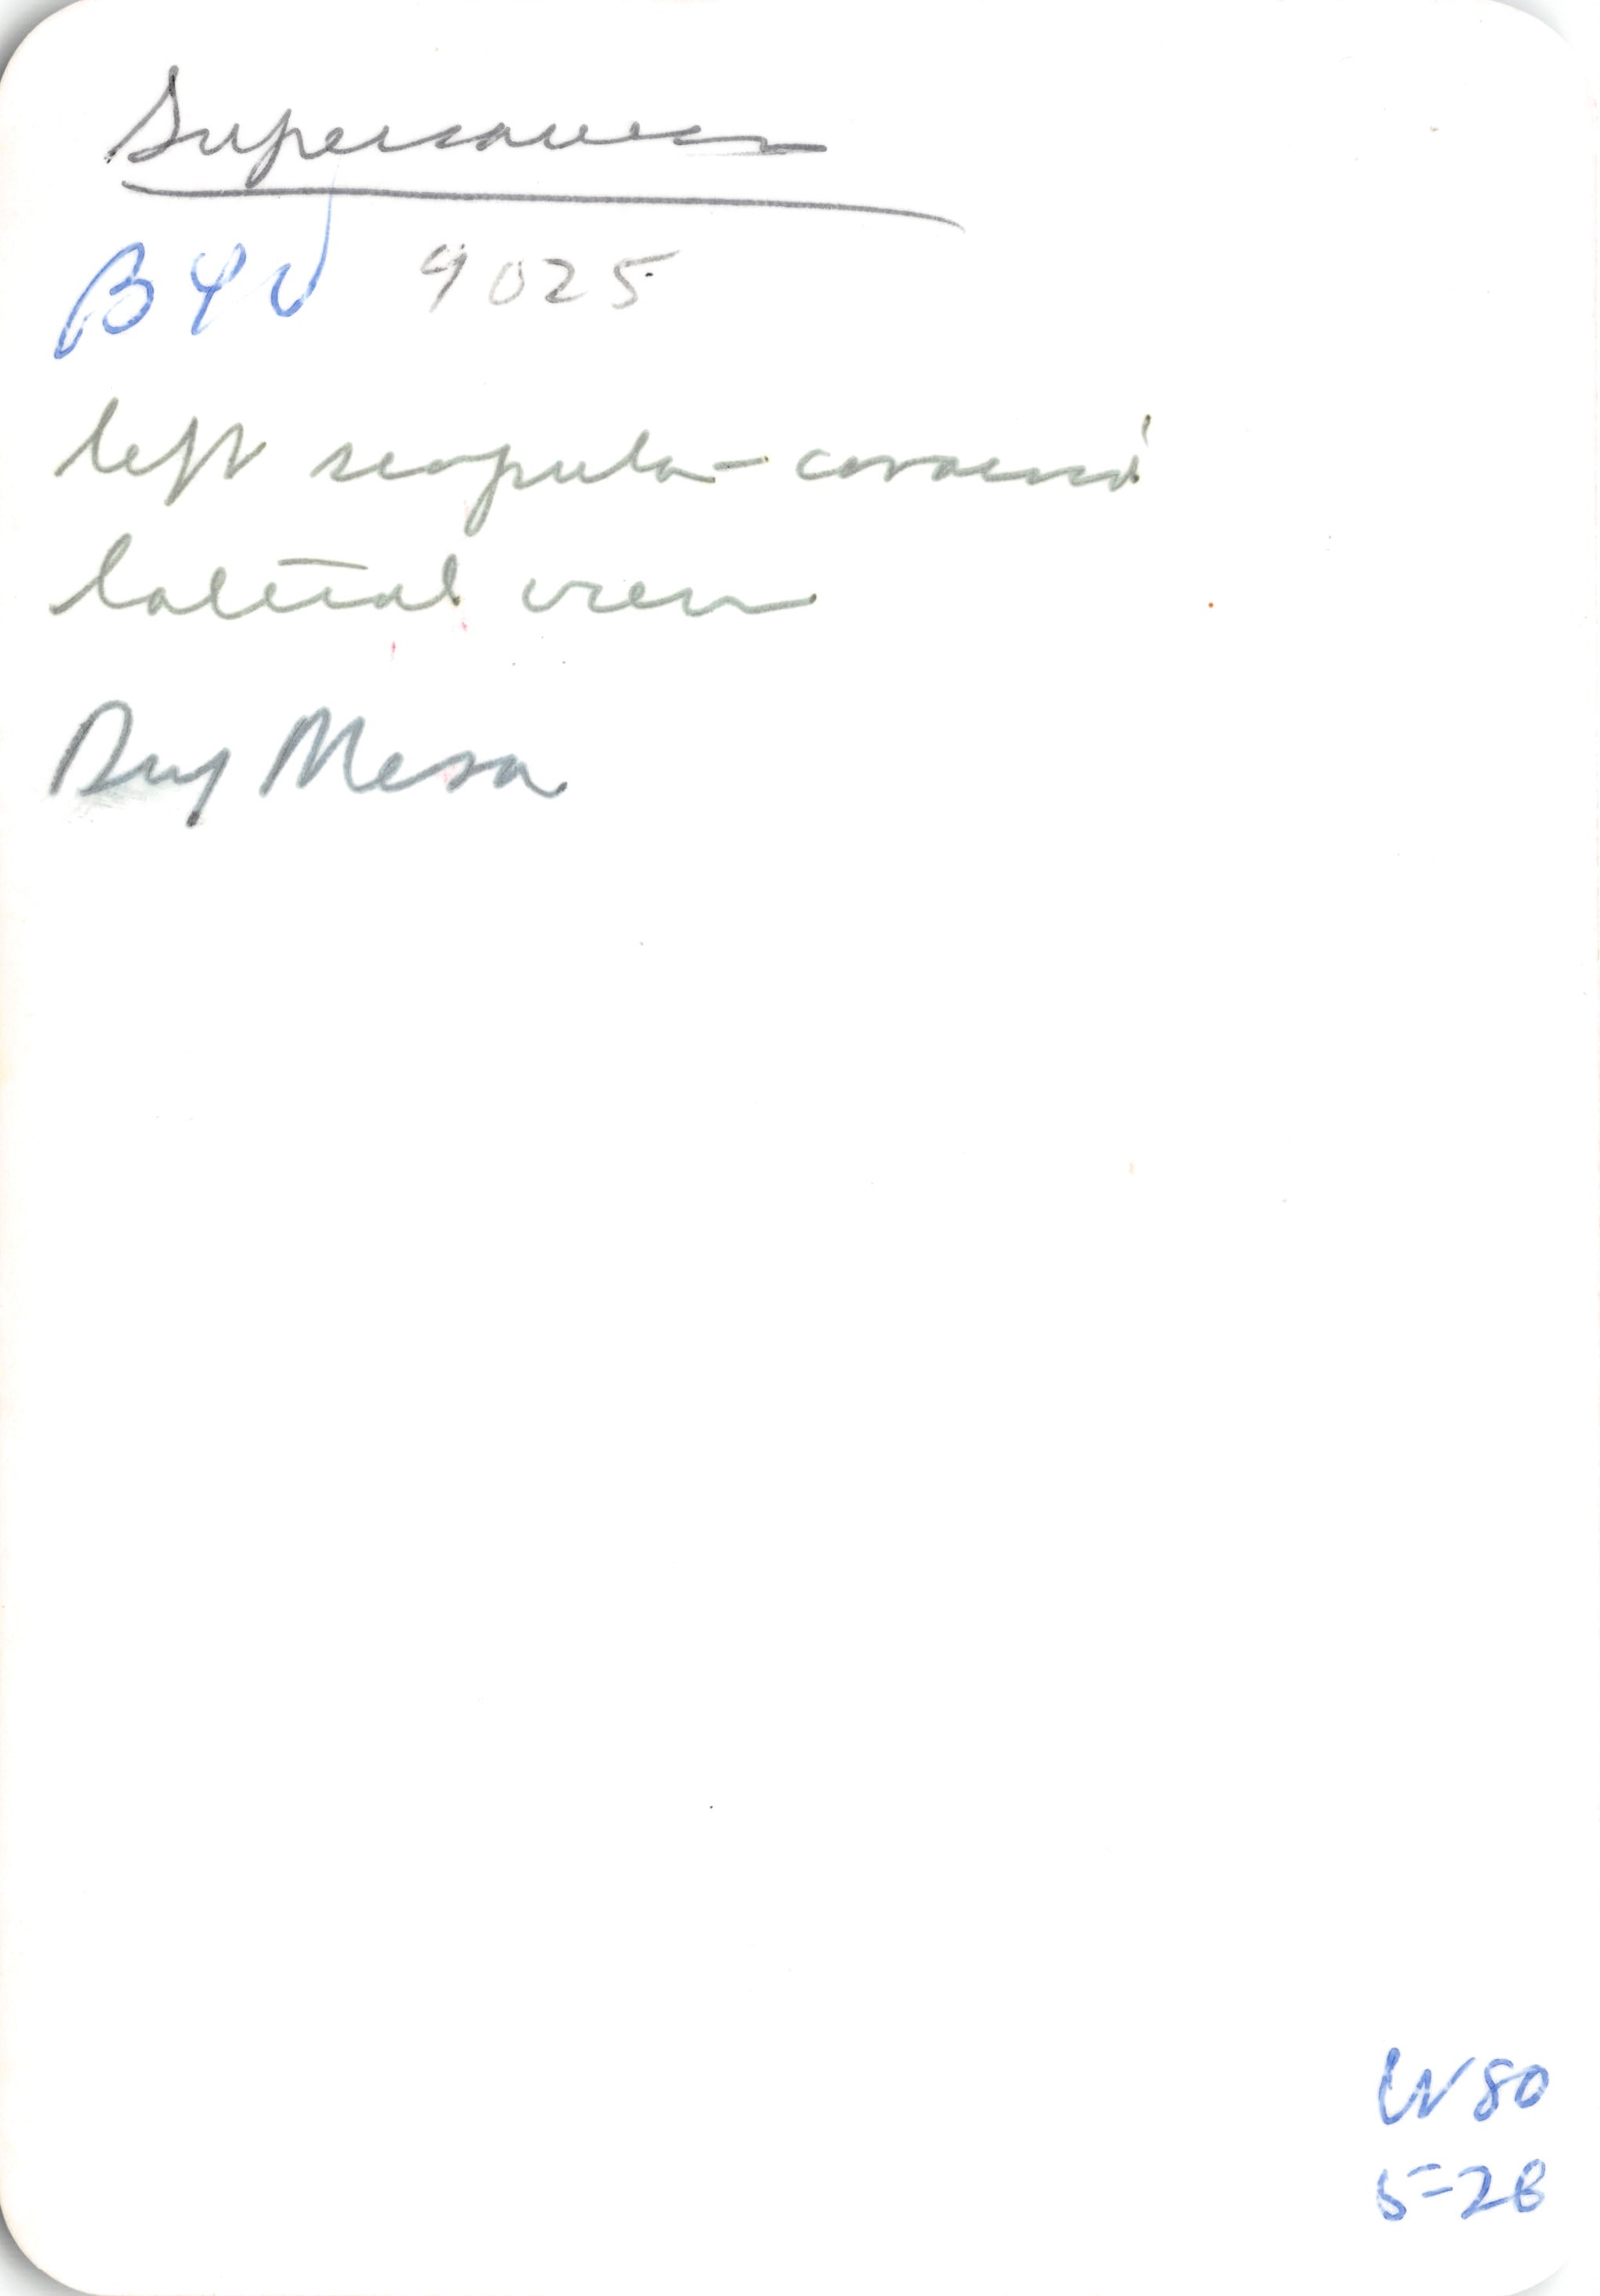 Supersaurus
BYU 9025
left scapula-coracoid
lateral view
Dry Mesa
W80
5-28